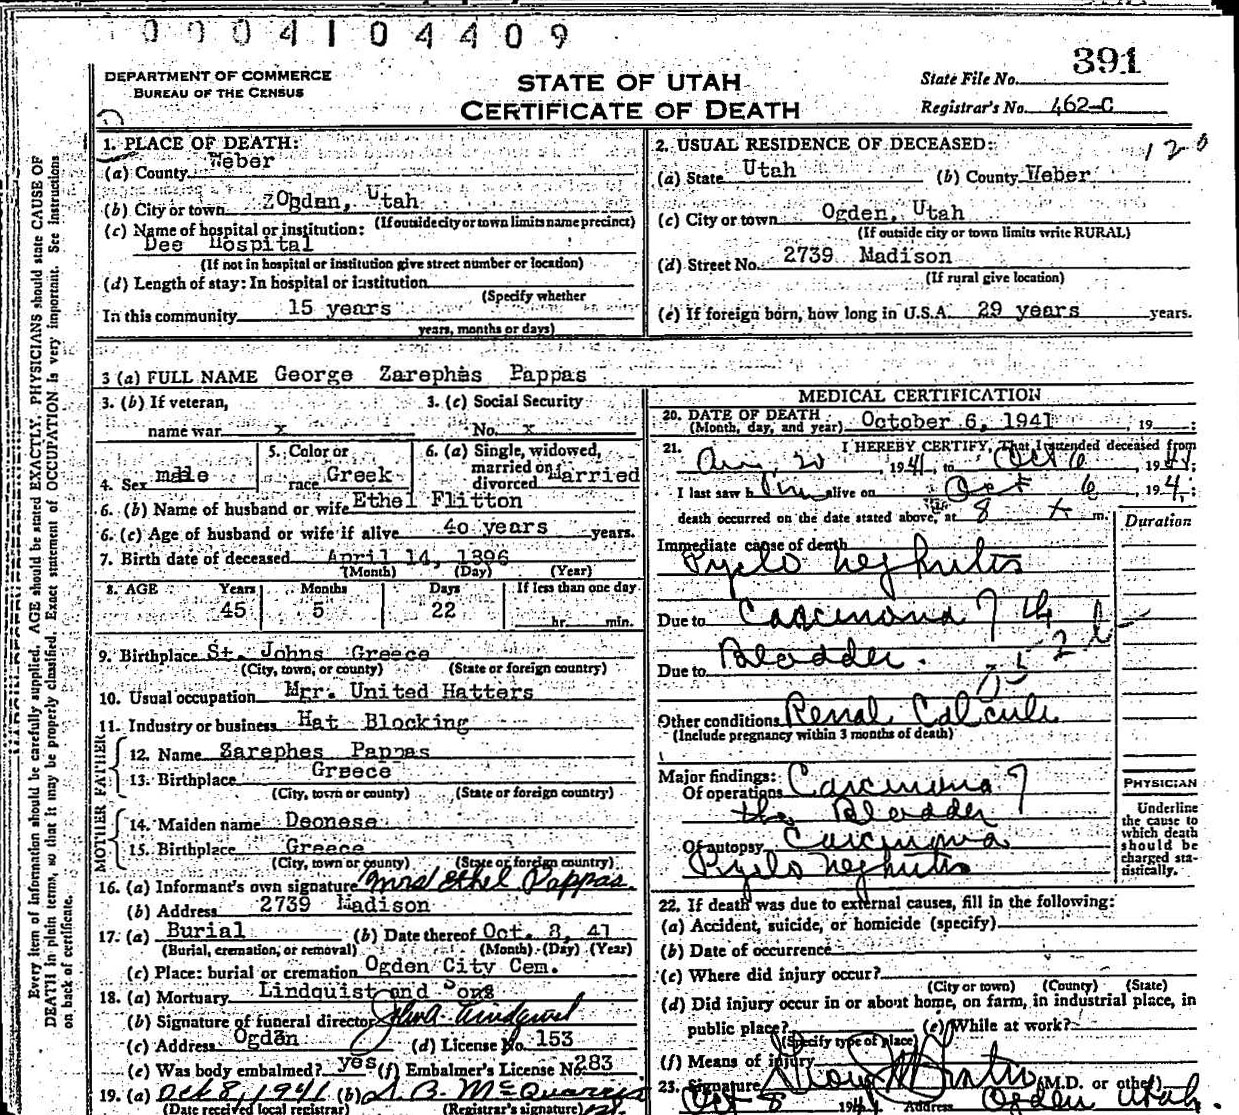 0004104409
391
DEPARTMENT OF COMMERCE
BUREAU OF THE CENSUS
STATE OF UTAH
CERTIFICATE OF DEATH
State File No.
Registrar's No. 462-C
1. PLACE OF DEATH:
(a) County Weber
(b) City or town Ogden, Utah
(If outside city or town limits name precinct)
(c) Name of hospital or institution:
Dee Hospital
(If not in hospital or institution give street number or location)
(d) Length of stay: In hospital or institution
(Specify whether
In this community 15 years
years, months or days)
2. USUAL RESIDENCE OF DECEASED:
120
(a) State Utah (b) County Weber
(c) City or town Ogden, Utah
(If outside city or town limits write RURAL)
(d) Street No. 2739 Madison
(If rural give location)
(e) If foreign born, how long in U.S.A. 29 years years.
3 (a) FULL NAME George Zarephes Pappas
3. (b) If veteran, 3. (c) Social Security
name war x No. x
4. Sex male 5. Color or race Greek 6. (a) Single, widowed, married or divorced Married
6. (b) Name of husband or wife Ethel Flitton
6. (c) Age of husband or wife if alive 40 years years.
7. Birth date of deceased April 14, 1896
(Month) (Day) (Year)
8. AGE Years Months Days If less than one day
45 5 22 hr. min.
9. Birthplace St. Johns Greece
(City, town, or county) (State or foreign country)
10. Usual occupation Mrr. United Hatters
11. Industry or business Hat Blocking
FATHER
12. Name Zarephes Pappas
13. Birthplace Greece
(City, town or county) (State or foreign country)
MOTHER
14. Maiden name Deonese
15. Birthplace Greece
(City, town or county) (State or foreign country)
16. (a) Informant's own signature Mrs Ethel Pappas
(b) Address 2739 Madison
17. (a) Burial (b) Date thereof Oct. 8, 41
(Burial, cremation, or removal) (Month) (Day) (Year)
(c) Place: burial or cremation Ogden City Cem.
18. (a) Mortuary Lindquist and Sons
(b) Signature of funeral director John A. Lindquist
(c) Address Ogden (d) License No. 153
(e) Was body embalmed? yes (f) Embalmer's License No. 283
19. (a) Oct 8, 1941 (b)
(Date received local registrar) (Registrar's signature)
MEDICAL CERTIFICATION
20. DATE OF DEATH October 6, 1941, 19
(Month, day, and year)
21. I HEREBY CERTIFY, That I attended deceased from
Aug 20, 1941, to Oct 6, 1941;
I last saw him alive on Oct 6, 1941;
death occurred on the date stated above, at 8 m.
Duration
Immediate cause of death
Pyelo Nephritis
Due to Carcinoma of the
Due to Bladder.
Other conditions Renal Calculi
(Include pregnancy within 3 months of death)
Major findings:
Of operations Carcinoma of
the Bladder
Of autopsy Carcinoma
Pyelo Nephritis
PHYSICIAN
Underline
the cause to
which death
should be
charged sta-
tistically.
22. If death was due to external causes, fill in the following:
(a) Accident, suicide, or homicide (specify)
(b) Date of occurrence
(c) Where did injury occur?
(City or town) (County) (State)
(d) Did injury occur in or about home, on farm, in industrial place, in
public place? (e) While at work?
(Specify type of place)
(f) Means of injury
23. Signature (M.D. or other)
Oct 8 1941 Address Ogden Utah.
Every item of information should be carefully supplied. AGE should be stated EXACTLY. PHYSICIANS should state CAUSE OF
DEATH in plain terms, so that it may be properly classified. Exact statement of OCCUPATION is very important. See instructions
on back of certificate.